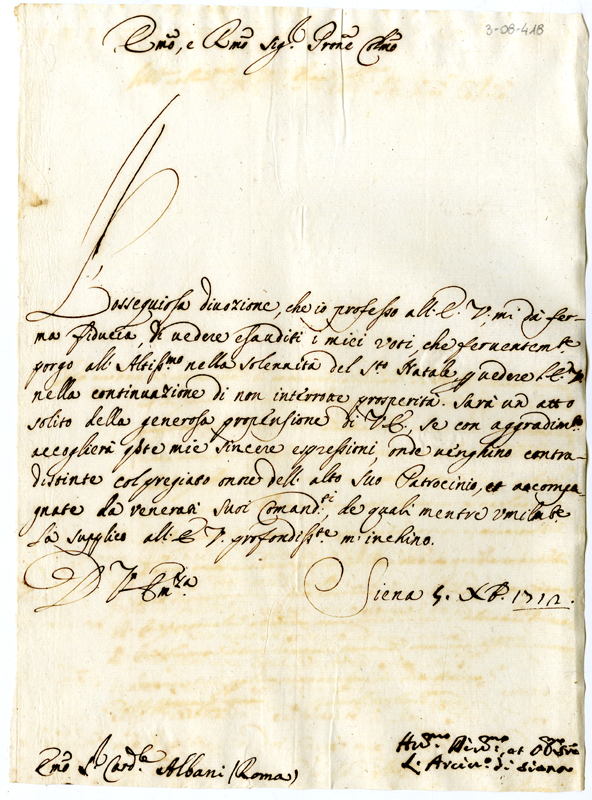 3-08-418
Emo, e Rmo Sigr. Prone Colmo
L'ossequiosa divozione, che io professo all'E. V., mi dà fer-
ma fiducia, di vedere esauditi i miei voti, che ferventemte
porgo all'Altissmo nella solennità del Sto Natale p vedere l'E. V.
nella continuazione di non interrone prosperità. Sarà un atto
solito della generosa propensione di V. E., se con aggradimto
accoglierà qste mie sincere espressioni, onde venghino contra-
distinte col pregiato onore dell'alto suo Patrocinio, et accompa-
gnate da venerati suoi Comandti, de quali mentre umilmte
La supplico all'E. V. profondisste m'inchino.
D V. Emza
Siena 5. Xb. 1712.
Emo Sr Cardle Albani (Roma)
Humo Divmo, et Obbmo Sre
L'Arcivo di Siena